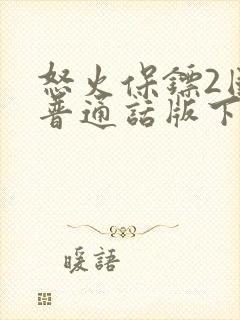 怒火保鏢2国
普通話版下
暖語